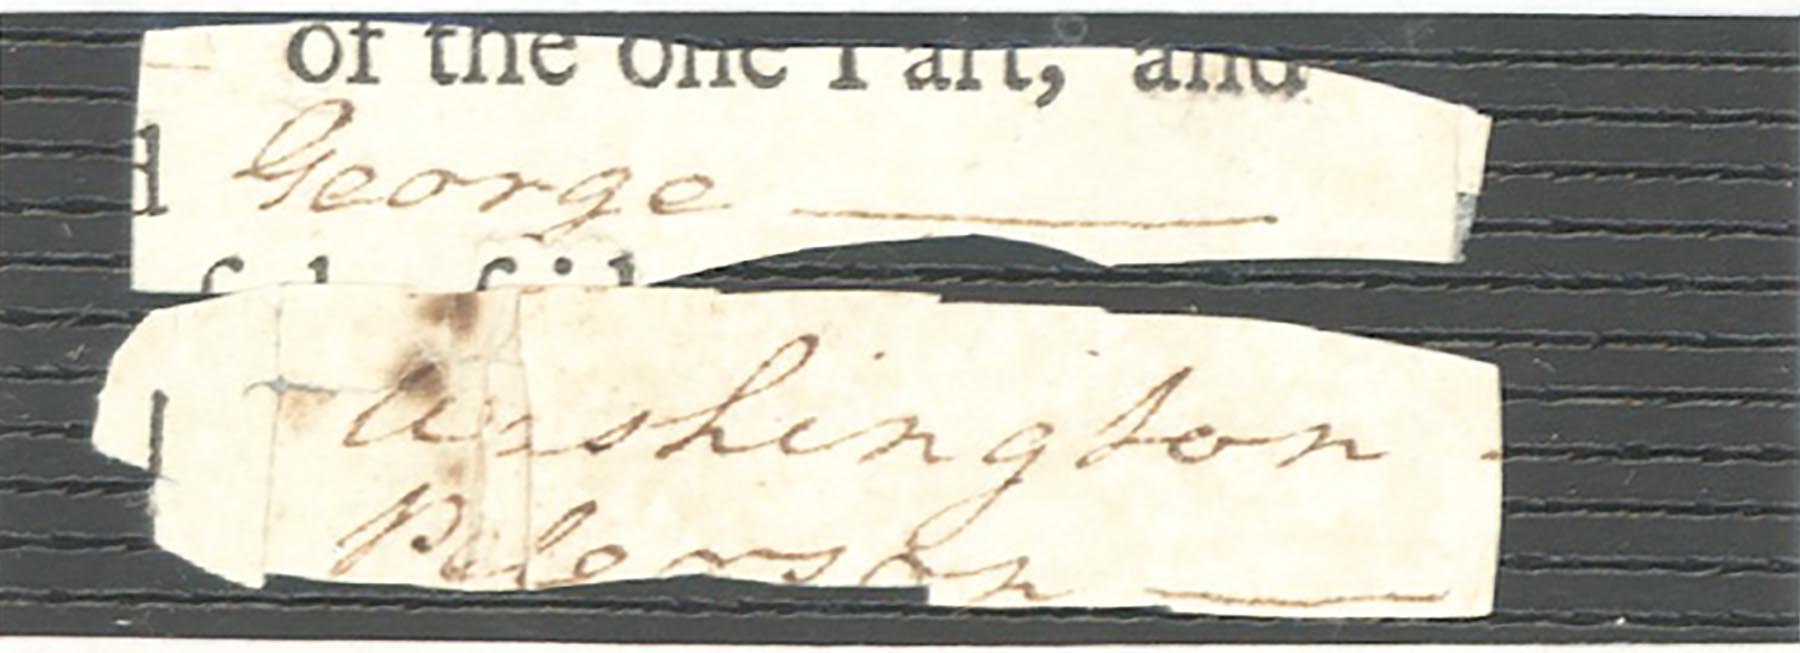 of the one Part, and
d George
Washington